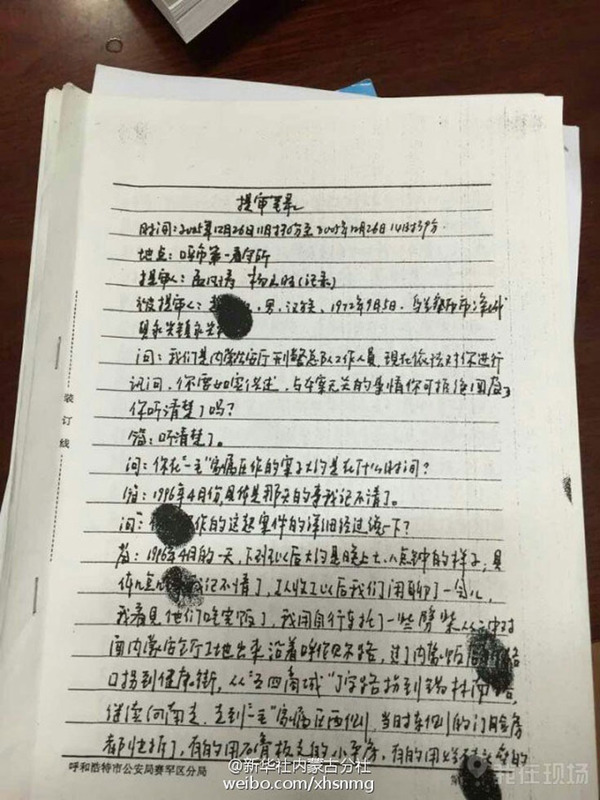 提审笔录
时间：2005年12月26日11时30分至2005年12月26日14时39分
地点：呼市第一看守所
提审人：（记录）
被提审人：，男，汉族，1972年9月5日，乌兰察布市凉城
县永兴镇永兴
问：我们是内蒙公安厅刑警总队工作人员，现在依法对你进行
讯问，你要如实供述，与本案无关的事情你可拒绝回答，
你听清楚了吗？
答：听清楚了。
问：你在"一毛"家属区作的案子大约是在什么时间？
答：1996年4月份，具体是那天的事我记不清了。
问：作的这起案件的详细经过统一下？
答：1996年4月的一天，下班以后大约是晚上七、八点钟的样子，具
体几点记不清了，收工以后我们闲聊了一会儿，
我看见他们吃完饭了，我用自行车托了一些劈柴从
面内蒙公安厅工地出来沿着呼伦贝尔路，过了内蒙饭店
口拐到健康街，从"五四商城"丁字路拐到锡林南路，
继续向南走，走到"一毛"家属区西侧，当时东侧的门
都也拆了，有的用石膏板支的小平房，有的用
装订线
呼和浩特市公安局赛罕区分局
第
@新华社内蒙古分社
weibo.com/xhsnmg
我在现场